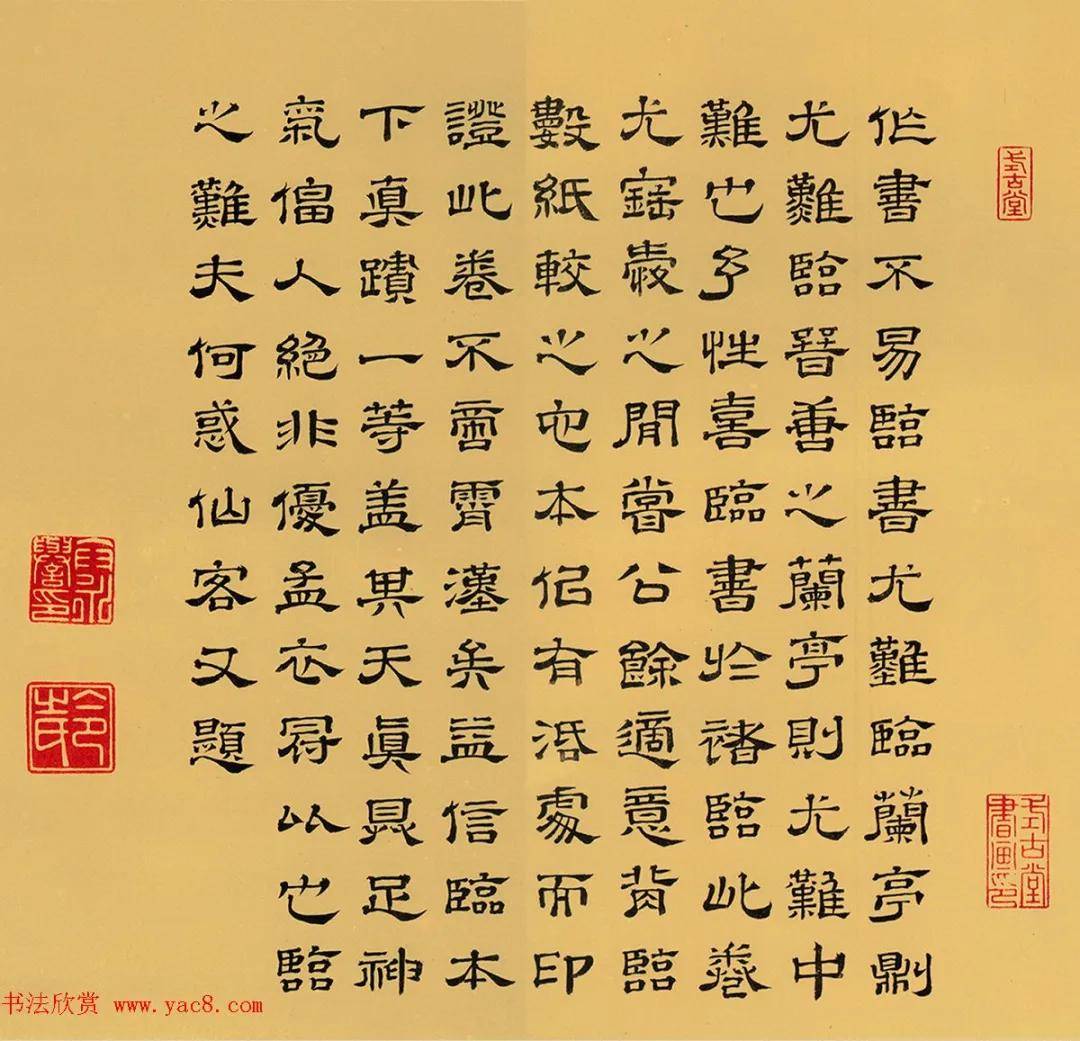 作書不易臨書尤難臨蘭亭則
尤難臨晉善之蘭亭則尤難中
難也予性喜臨書於褚臨此卷
尤寶愛之閒嘗公餘適意背臨
數紙較之它本佀有活處而印
證此卷不啻霄漢矣益信臨本
下真蹟一等蓋其天真具足神
氣偪人絕非優孟衣冠比也臨
之難夫何惑仙客又題
式古堂
式古堂書畫印
卞永譽印
书法欣赏 www.yac8.com